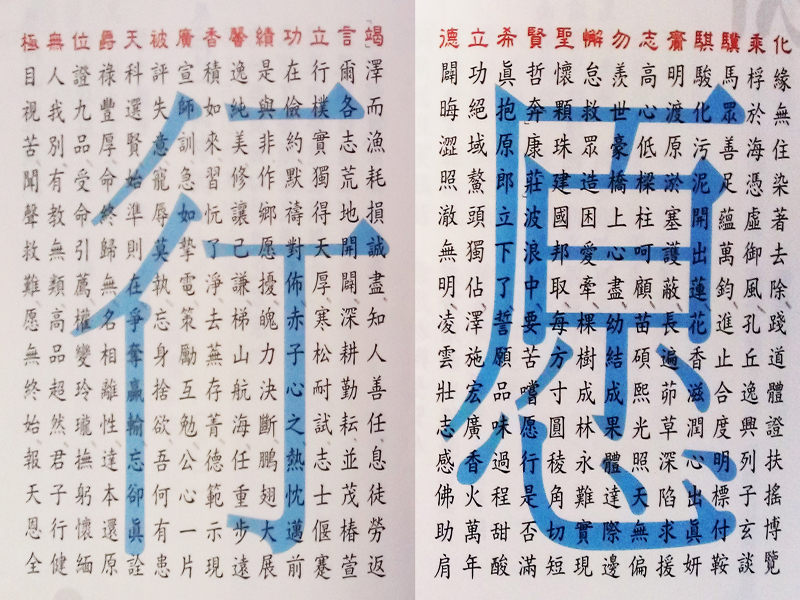 愿
化緣無住染著去除踐道體證扶搖博覽
乘桴於海憑虛御風孔丘逸興列子玄談
驥馬眾善足蘊萬鈞進止合度明標付鞍
騏駿化污泥開出蓮花香滋潤心出眞妍
齋明渡原淤塞護蔽長遍茆草深陷求援
志高心低樑柱呵顧苗碩熙光照天無偏
勿羨世豪橋上心盡幼結成果體達際邊
懈怠救眾造困愛牽棵樹成林永難實現
聖懷顆珠建國邦取每方寸圓稜角切短
賢哲奔康莊波浪中要苦嚐愿行是否滿
希眞抱原郎立下了誓願品味過程甜酸
立功絕域鰲頭獨佔澤施宏廣香火萬年
德闢晦澀照澈無明凌雲壯志感佛助肩
行
竭澤而漁耗損誠盡知人善任息徒勞返
言爾各志荒地開闢深耕勤耘並茂椿萱
立行樸實獨得天厚寒松耐試志士偃蹇
功在儉約默禱對佈赤子心之熱忱邁前
績是與非作鄉愿擾魄力決斷鵬翅大展
馨逸純美修讓己謙梯山航海任重步遠
香積如來習忨了淨去蕪存菁德範示現
廣宣師訓急如摯電策勵互勉公心一片
被評失意寵辱莫執忘身捨欲吾何有患
天科選賢始準則在爭奪贏輸忘卻眞詮
爵祿豐厚命終歸無名相離性達本還原
位證九品受命引薦權變玲瓏撫躬懷緬
無人我別有教無類高品超然君子行健
極目視苦聞聲救難愿無終始報天恩全